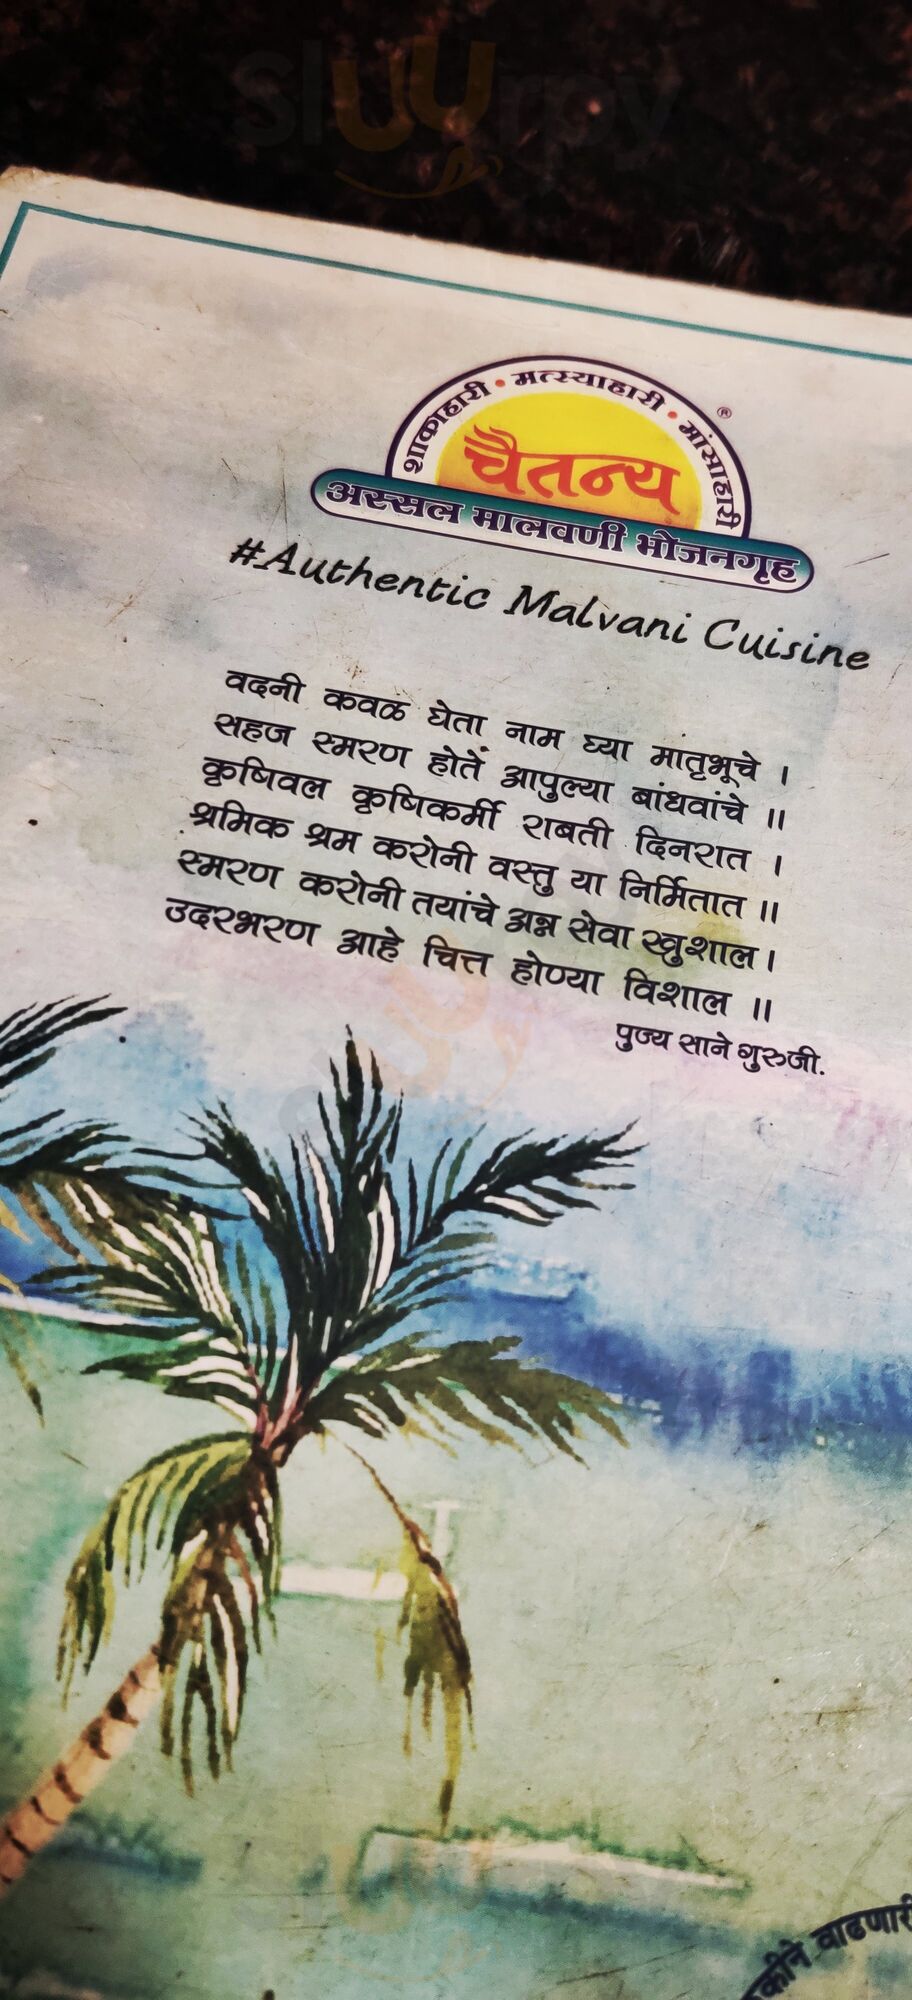 Sluurpy
शाकाहारी • मत्स्याहारी • मांसाहारी ®
चैतन्य
अस्सल मालवणी भोजनगृह
#Authentic Malvani Cuisine
वदनी कवळ घेता नाम घ्या मातृभूचे ।
सहज स्मरण होतें आपुल्या बांधवांचे ॥
कृषिवल कृषिकर्मी राबती दिनरात ।
श्रमिक श्रम करोनी वस्तु या निर्मितात ॥
स्मरण करोनी तयांचे अन्न सेवा खुशाल।
उदरभरण आहे चित्त होण्या विशाल ॥
पुज्य साने गुरुजी.
वाढणारी